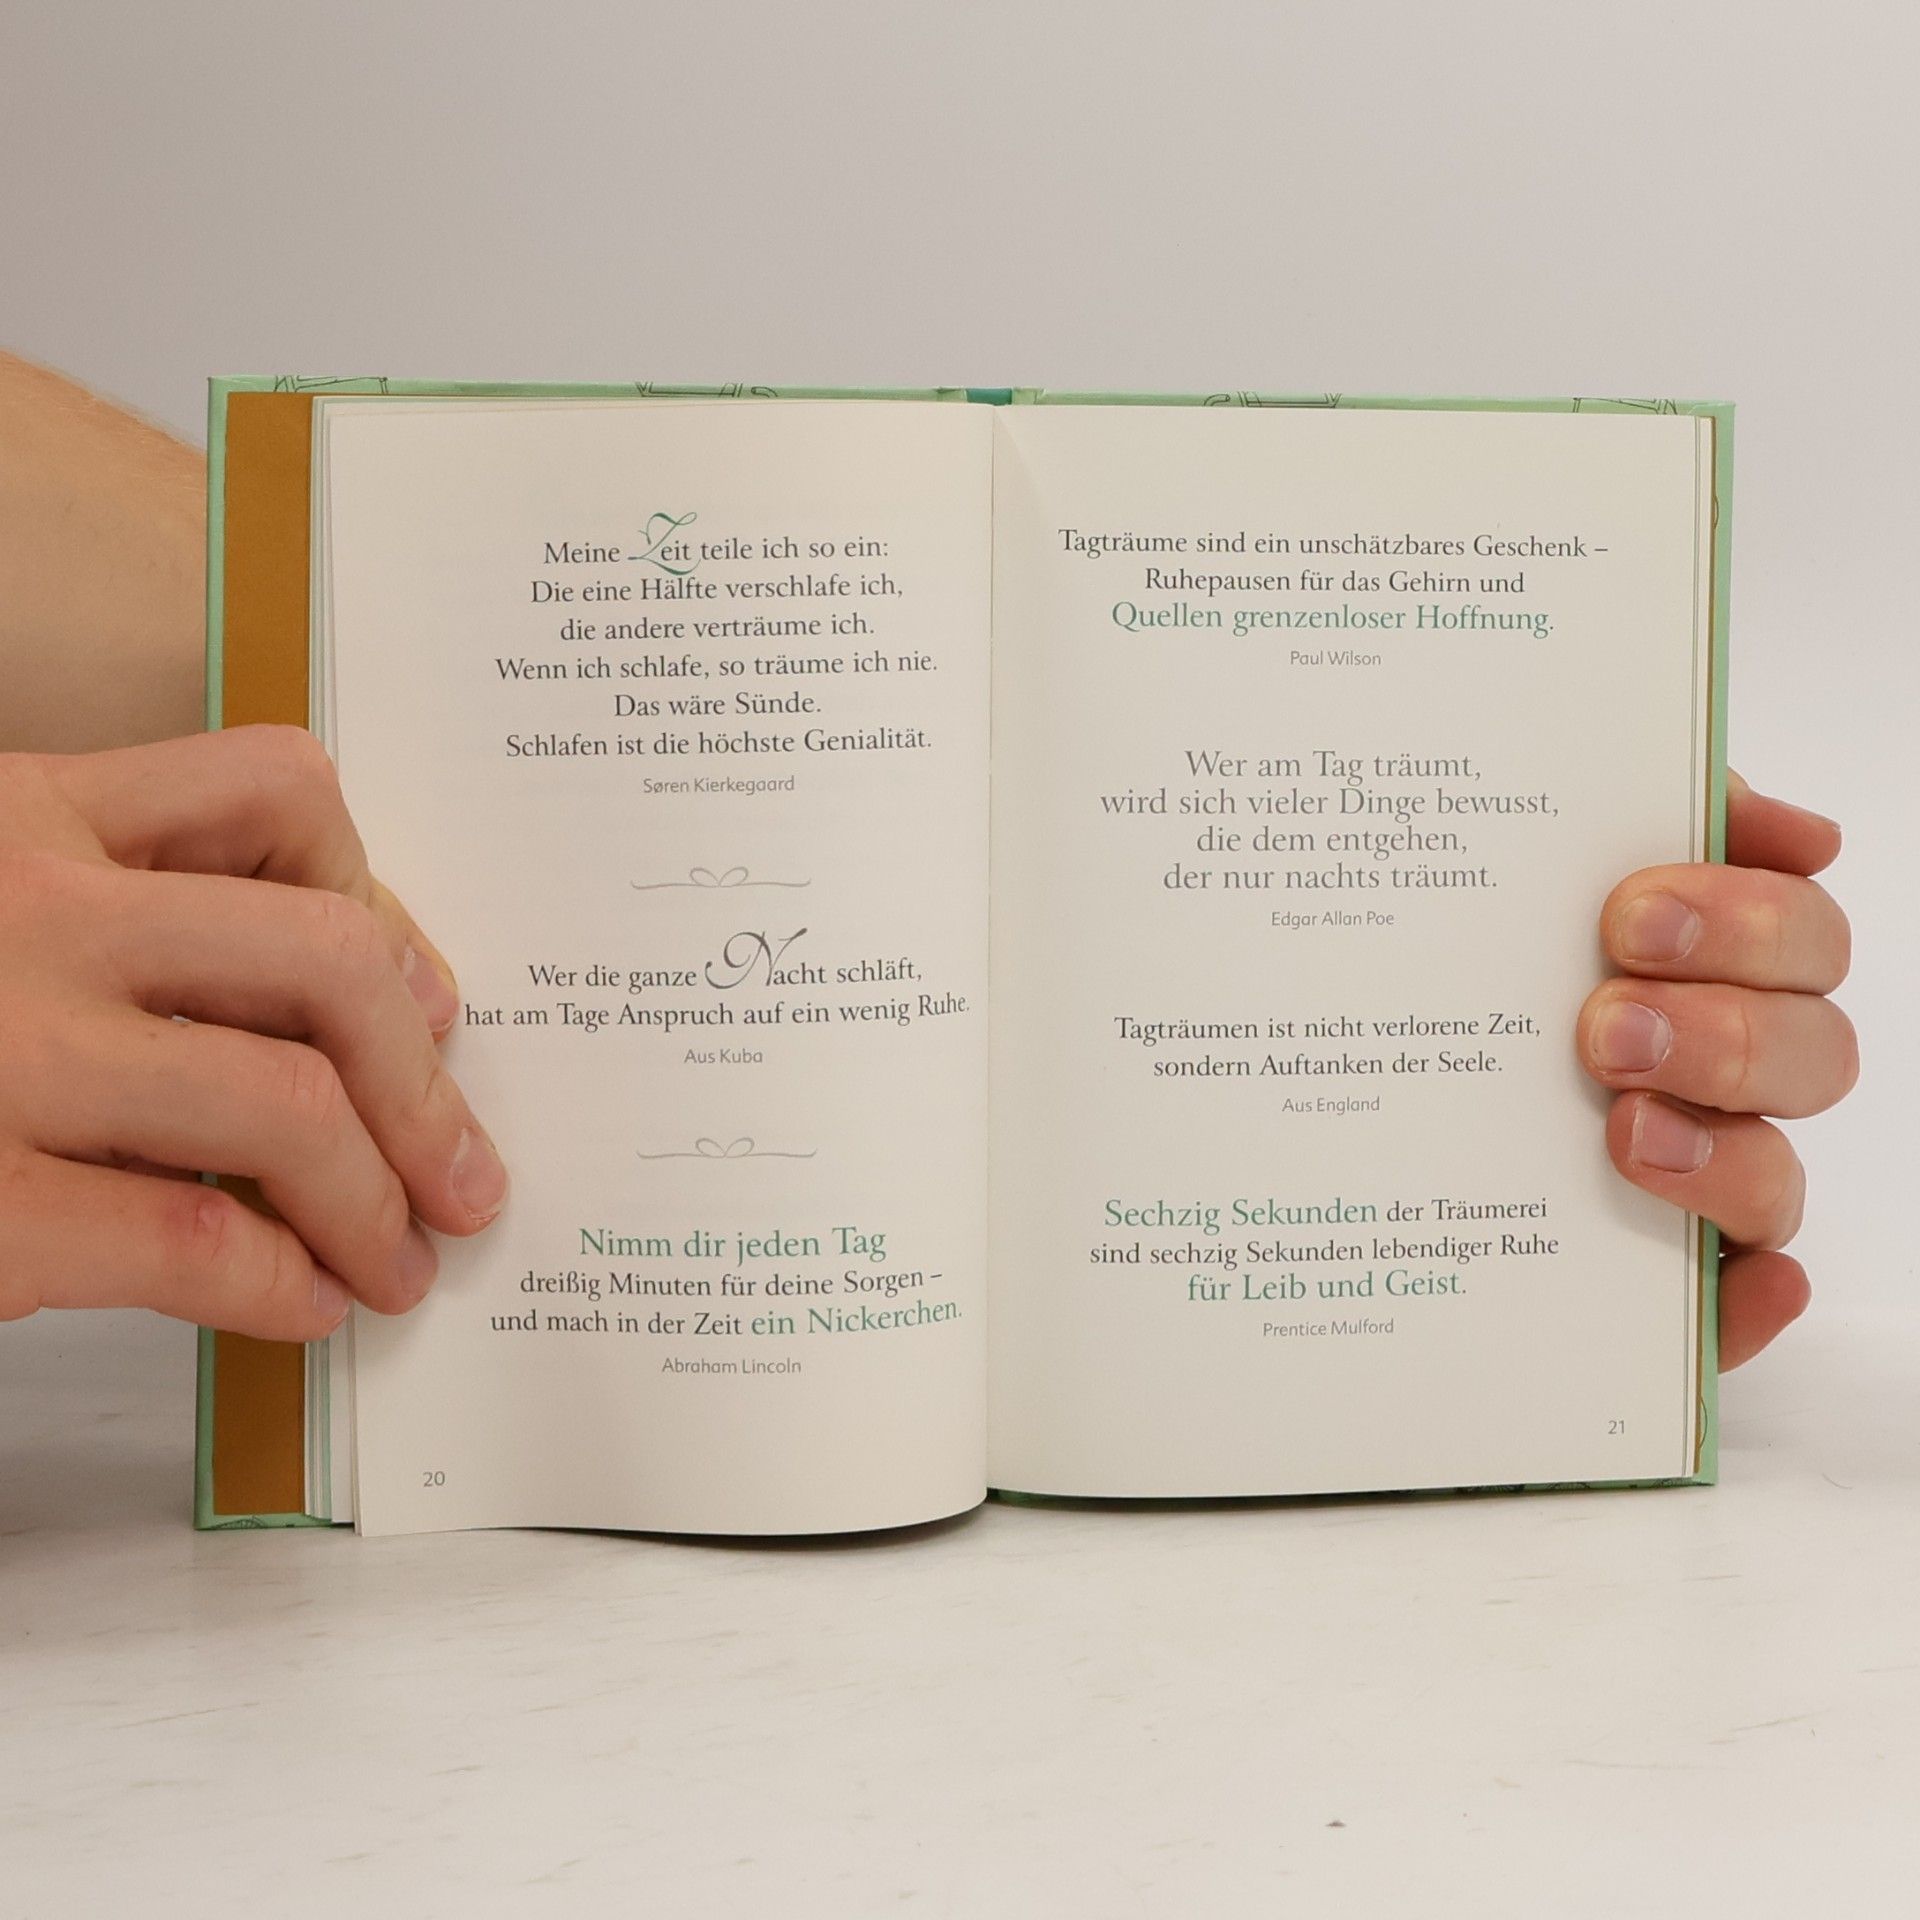 Meine Zeit teile ich so ein:
Die eine Hälfte verschlafe ich,
die andere verträume ich.
Wenn ich schlafe, so träume ich nie.
Das wäre Sünde.
Schlafen ist die höchste Genialität.
Søren Kierkegaard
Wer die ganze Nacht schläft,
hat am Tage Anspruch auf ein wenig Ruhe.
Aus Kuba
Nimm dir jeden Tag
dreißig Minuten für deine Sorgen –
und mach in der Zeit ein Nickerchen.
Abraham Lincoln
20
Tagträume sind ein unschätzbares Geschenk –
Ruhepausen für das Gehirn und
Quellen grenzenloser Hoffnung.
Paul Wilson
Wer am Tag träumt,
wird sich vieler Dinge bewusst,
die dem entgehen,
der nur nachts träumt.
Edgar Allan Poe
Tagträumen ist nicht verlorene Zeit,
sondern Auftanken der Seele.
Aus England
Sechzig Sekunden der Träumerei
sind sechzig Sekunden lebendiger Ruhe
für Leib und Geist.
Prentice Mulford
21